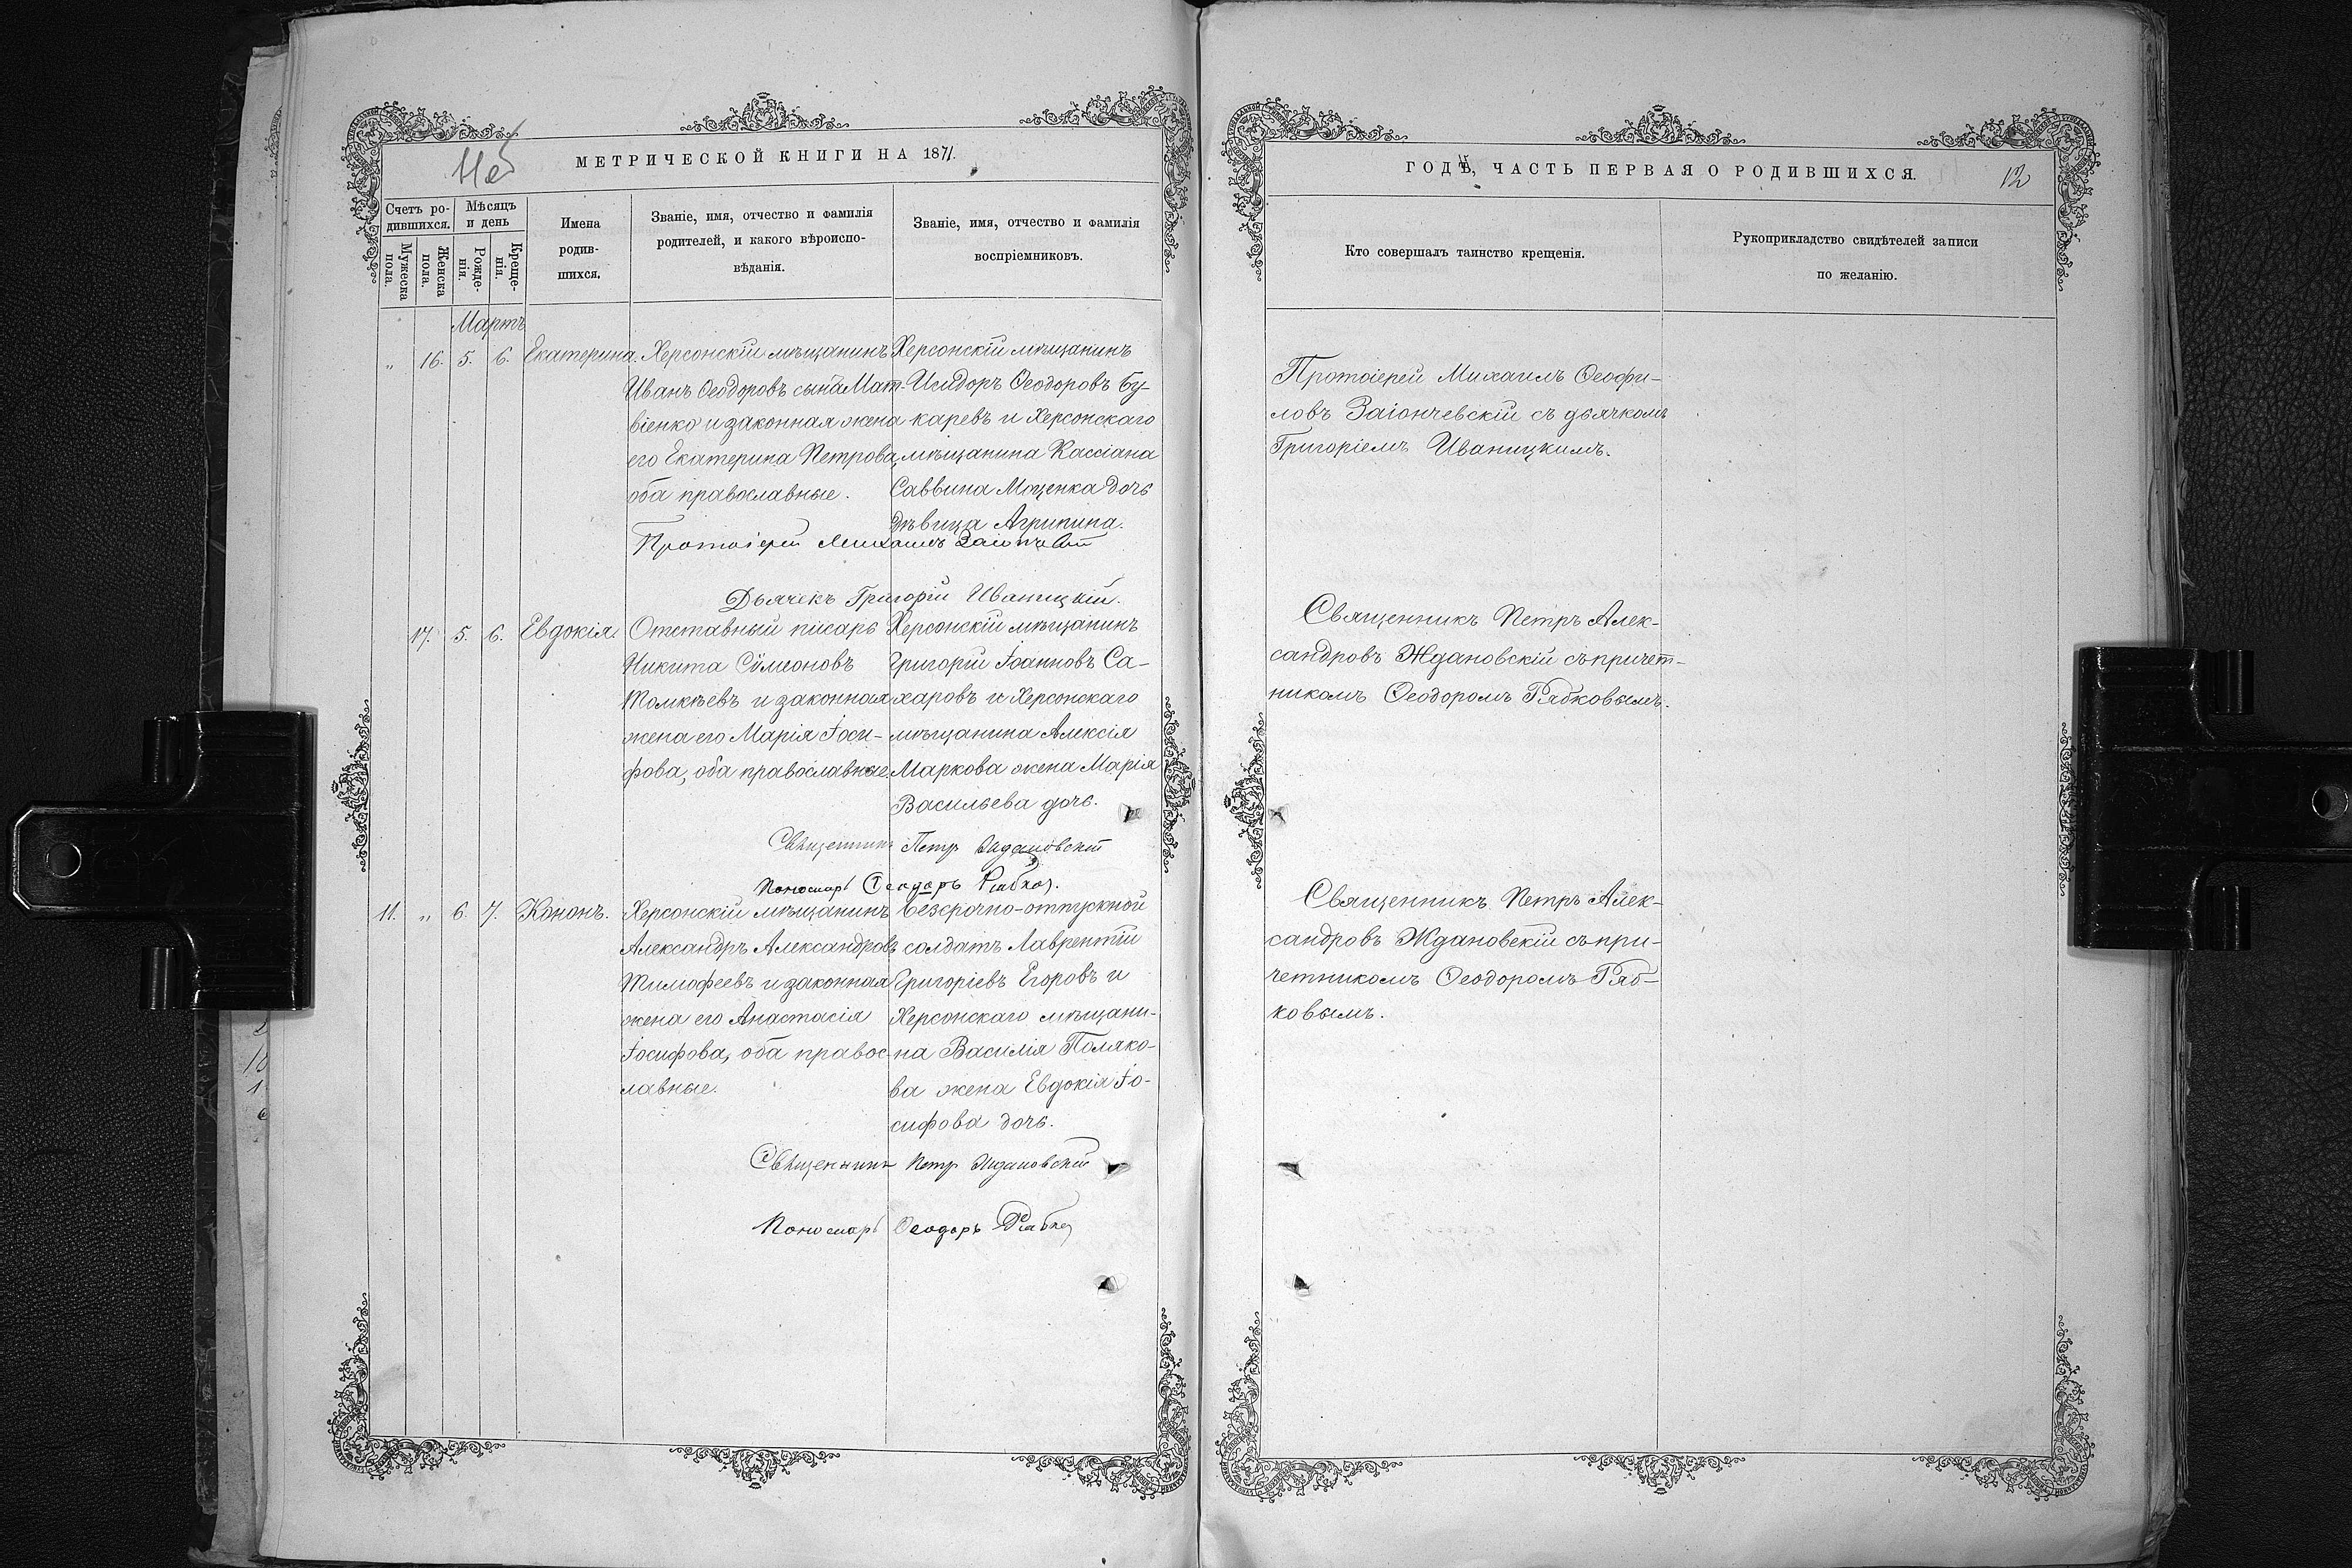 МЕТРИЧЕСКОЙ КНИГИ НА 1871.
Счетъ ро-
дившихся.
Мѣсяцъ
и день
Мужеска
пола.
Женска
пола.
Рожде-
нія.
Креще-
нія.
Имена
родив-
шихся.
Званіе, имя, отчество и фамилія
родителей, и какого вѣроиспо-
вѣданія.
Званіе, имя, отчество и фамилія
воспріемниковъ.
Мартъ
" 16. 5. 6. Екатерина.
Херсонскій мѣщанинъ
Иванъ Ѳеодоровъ сынъ Мат-
віенко и законная жена
его Екатерина Петрова,
оба православные.
Херсонскій мѣщанинъ
Исидоръ Ѳеодоровъ Бу-
каревъ и Херсонскаго
мѣщанина Кассіана
Саввина Моценка дочь
дѣвица Агрипина.
Протоіерей Михаилъ
Дьячекъ Григорій Иваницкій.
17. 5. 6. Евдокія.
Отставный писарь
Никита Сѵмеоновъ
Томкѣевъ и законная
жена его Марія Іоси-
фова, оба православные.
Херсонскій мѣщанинъ
Григорій Іоанновъ Са-
харовъ и Херсонскаго
мѣщанина Алексія
Маркова жена Марія
Васильева дочь.
Священникъ Петръ Ждановскій
Пономарь Ѳеодоръ Рябков.
11. " 6. 7. Кононъ.
Херсонскій мѣщанинъ
Александръ Александровъ
Тимофеевъ и законная
жена его Анастасія
Іосифова, оба правос-
лавные.
Безсрочно-отпускной
солдатъ Лаврентій
Григоріевъ Егоровъ и
Херсонскаго мѣщани-
на Василія Поляко-
ва жена Евдокія Іо-
сифова дочь.
Священникъ Петръ Ждановскій
Пономарь Ѳеодоръ Рябков
ГОДЪ, ЧАСТЬ ПЕРВАЯ О РОДИВШИХСЯ.
12
Кто совершалъ таинство крещенія.
Рукоприкладство свидѣтелей записи
по желанію.
Протоіерей Михаилъ Ѳеофи-
ловъ Заіончевскій съ дьячкомъ
Григоріемъ Иваницкимъ.
Священникъ Петръ Алек-
сандровъ Ждановскій съ причет-
никомъ Ѳеодоромъ Рябковымъ.
Священникъ Петръ Алек-
сандровъ Ждановскій съ при-
четникомъ Ѳеодоромъ Ряб-
ковымъ.